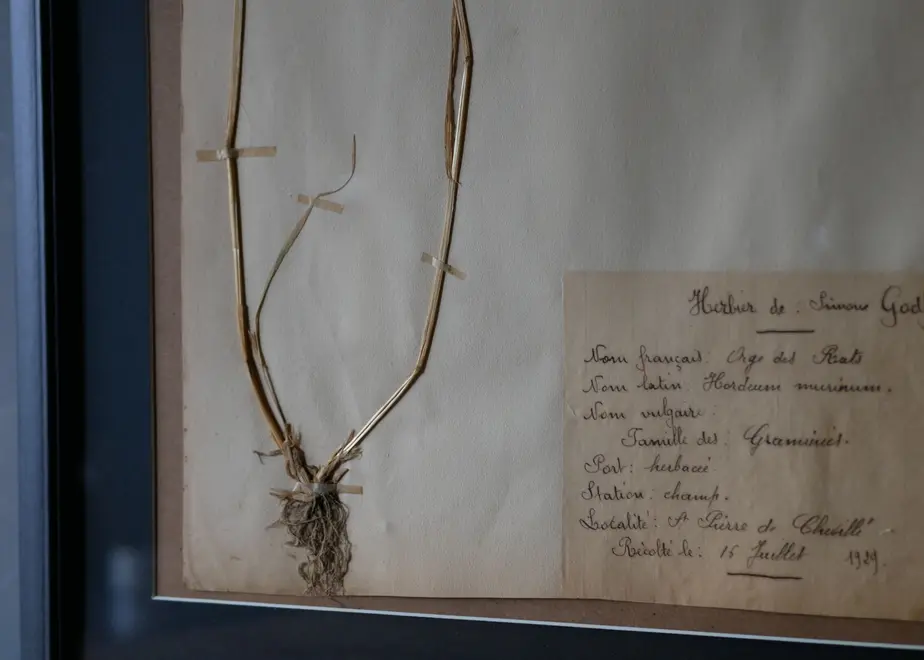 Herbier de : Simone God
Nom français : Orge des Rats
Nom latin : Hordeum murinum.
Nom vulgaire :
Famille des : Graminées.
Port : herbacé
Station : champ.
Localité : St Pierre de Chevillé
Récolté le : 15 Juillet 1929.